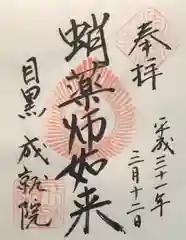 奉拝
平成三十一年
三月十二日
蛸薬師如来
目黒
成就院